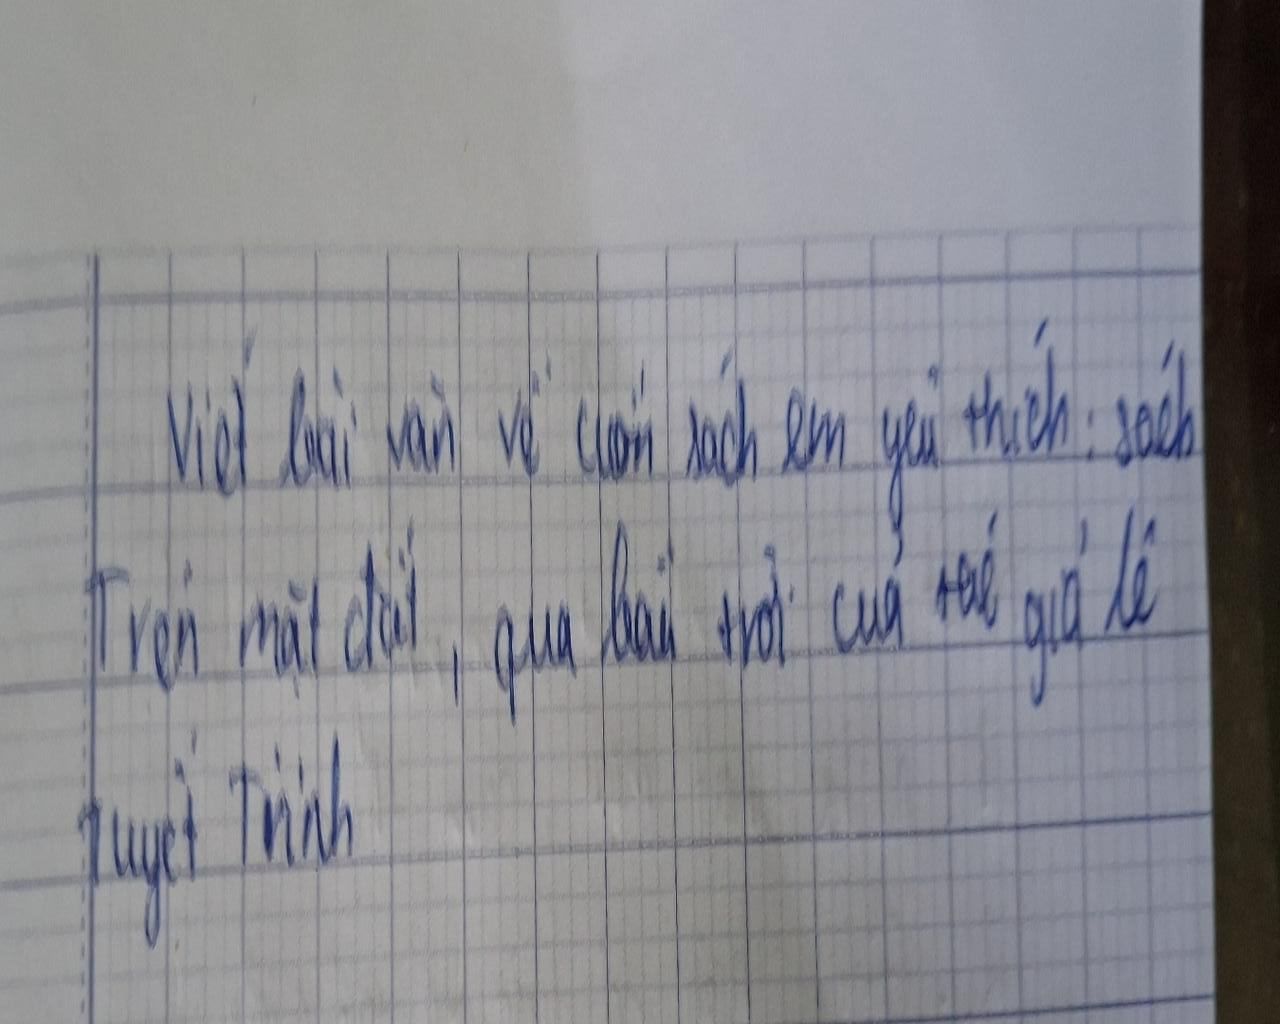 Viết bài văn về cuốn sách em yêu thích: sách
Trên mặt đất, qua bầu trời của tác giả lê
Tuyết Trinh